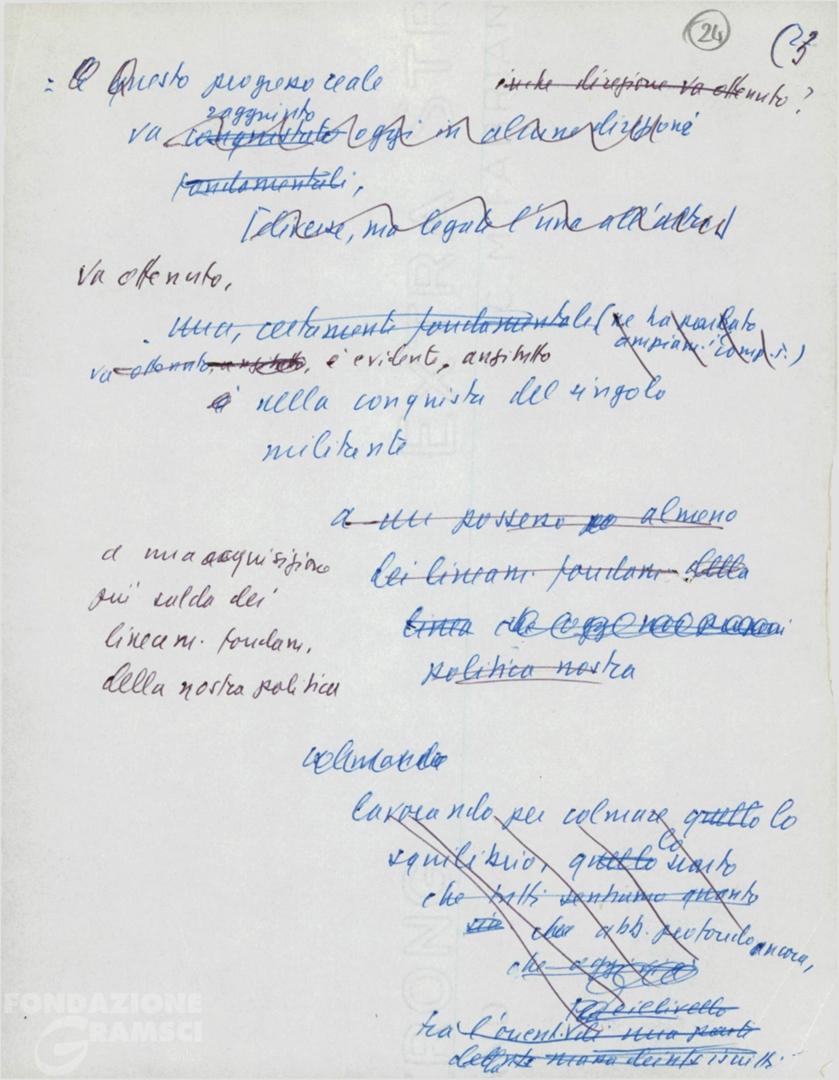 24
= Questo progresso reale
in che direzione va ottenuto?
raggiunto
va conquistato oggi in alcune direzioni
fondamentali,
[diverse, ma legate l'una all'altra]
va ottenuto,
una, certamente fondamentale (ne ha parlato
ampiam.
va ottenuto, anzitutto, è evidente, anzitutto
è nella conquista del singolo
militante
a un possesso almeno
a una acquisizione
più salda dei
lineam. fondam.
della nostra politica
dei lineam. fondam. della
linea che
politica nostra
colmando
lavorando per colmare quello lo
squilibrio, quello lo scarto
che tutti sentiamo quanto
sia che abb. profondo ancora,
che oggi
il livello
tra l'orient. di una parte
della massa degli iscritti
FONDAZIONE
GRAMSCI